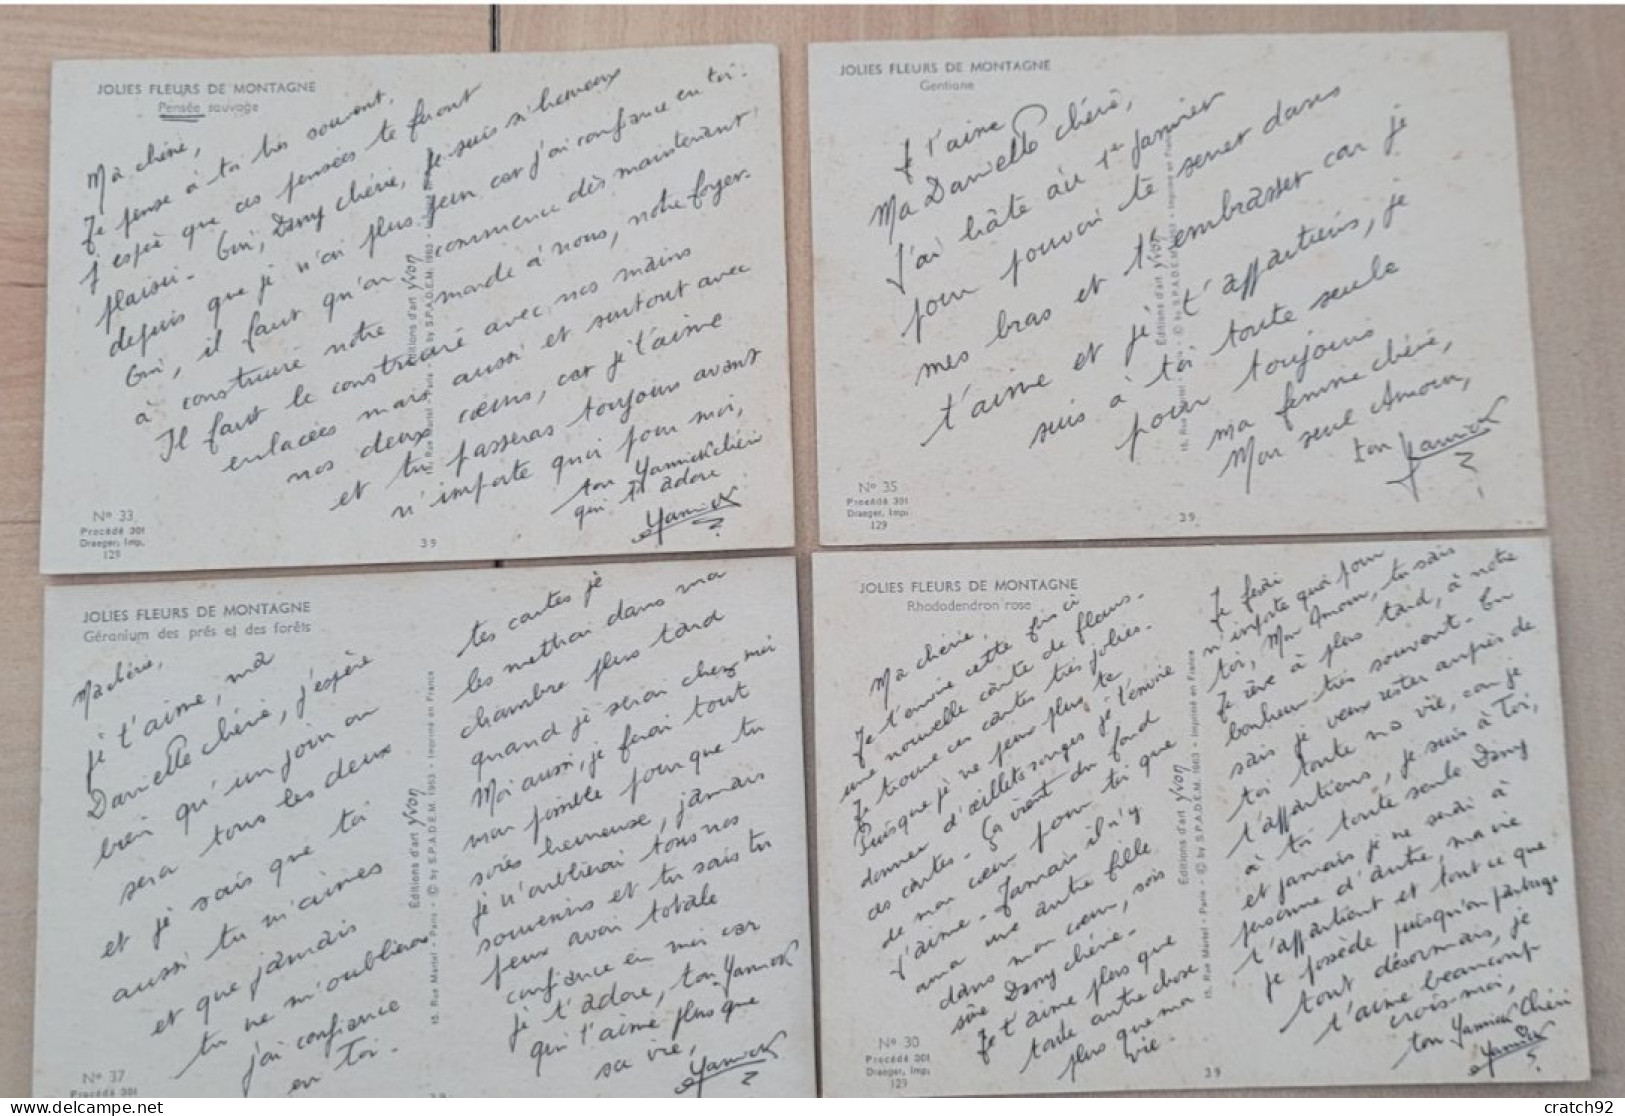 JOLIES FLEURS DE MONTAGNE
Pensée sauvage
Ma chérie,
Je pense à toi très souvent,
J'espère que ces pensées te feront
plaisir. Oui, Dany chérie, je suis si heureux
depuis que je n'ai plus peur car j'ai confiance en toi.
Oui, il faut qu'on commence dès maintenant
à construire notre monde à nous, notre foyer.
Il faut le construire avec nos mains
enlacées mais aussi et surtout avec
nos deux cœurs, car je t'aime
et tu passeras toujours avant
n'importe quoi pour moi,
ton Yannick chéri
qui t'adore
Yannick
Éditions d'art Yvon
15, Rue Martel - Paris - © by S.P.A.D.E.M. 1963 -
N° 33
Procédé 301
Draeger, Imp.
129
39
JOLIES FLEURS DE MONTAGNE
Gentiane
Je t'aime
Ma Danielle chérie,
J'ai hâte au 1er janvier
pour pouvoir te serrer dans
mes bras et t'embrasser car je
t'aime et je t'appartiens, je
suis à toi toute seule
pour toujours
ma femme chérie,
Mon seul Amour,
ton Yannick
Éditions d'art Yvon
15, Rue Martel - Paris - © by S.P.A.D.E.M. 1963 - Imprimé en France
N° 35
Procédé 301
Draeger, Imp.
129
39
JOLIES FLEURS DE MONTAGNE
Géranium des prés et des forêts
Ma chérie,
je t'aime, ma
Danielle chérie, j'espère
bien qu'un jour on
sera tous les deux
et je sais que toi
aussi tu m'aimes
et que jamais
tu ne m'oublieras
j'ai confiance
en Toi.
tes cartes je
les mettrai dans ma
chambre plus tard
quand je serai chez moi
Moi aussi, je ferai tout
mon possible pour que tu
sois heureuse, jamais
je n'oublierai tous nos
souvenirs et tu sais tu
peux avoir totale
confiance en moi car
je t'adore, ton Yannick
qui t'aime plus que
sa vie,
Yannick
Éditions d'art Yvon
15, Rue Martel - Paris - © by S.P.A.D.E.M. 1963 - Imprimé en France
N° 37
Procédé 301
39
JOLIES FLEURS DE MONTAGNE
Rhododendron rose
Ma chérie,
Je t'envoie cette fois ci
une nouvelle carte de fleurs.
Je trouve ces cartes très jolies.
Puisque je ne peux plus te
donner d'œillets rouges je t'envoie
ces cartes. Ça vient du fond
de mon cœur pour toi que
j'aime. Jamais il n'y
aura une autre fille
dans mon cœur, sois
sûre Dany chérie.
Je t'aime plus que
toute autre chose
plus que ma
vie.
Je ferai
n'importe quoi pour
toi, Mon Amour, tu sais
Je rêve à plus tard, à notre
bonheur très souvent. Tu
sais je veux rester auprès de
toi toute ma vie, car je
t'appartiens, je suis à Toi,
à toi toute seule Dany
et jamais je ne serai à
personne d'autre, ma vie
t'appartient et tout ce que
je possède puisqu'on partage
tout désormais, je
t'aime beaucoup
crois-moi,
ton Yannick Chéri
Yannick
Éditions d'art Yvon
15, Rue Martel - Paris - © by S.P.A.D.E.M. 1963 - Imprimé en France
N° 30
Procédé 301
Draeger, Imp.
129
39
cratch92